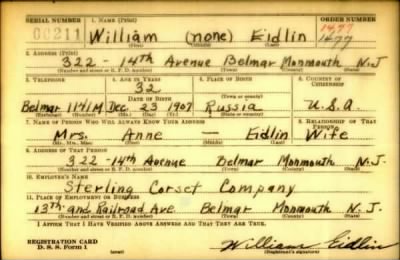 SERIAL NUMBER 1. NAME (Print) ORDER NUMBER
00211 William (none) Eidlin 1477
1477
(First) (Middle) (Last)
2. ADDRESS (Print)
322 - 14th Avenue Belmar Monmouth N.J.
(Number and street or R. F. D. number) (Town) (County) (State)
3. TELEPHONE 4. AGE IN YEARS 5. PLACE OF BIRTH 6. COUNTRY OF CITIZENSHIP
32
DATE OF BIRTH
Belmar 1141M Dec. 23 1907 Russia U.S.A.
(Exchange) (Number) (Mo.) (Day) (Yr.) (State or country)
7. NAME OF PERSON WHO WILL ALWAYS KNOW YOUR ADDRESS 8. RELATIONSHIP OF THAT PERSON
Mrs. Anne — Eidlin Wife
(Mr., Mrs., Miss) (First) (Middle) (Last)
9. ADDRESS OF THAT PERSON
322 - 14th Avenue Belmar Monmouth N.J.
(Number and street or R. F. D. number) (Town) (County) (State)
10. EMPLOYER'S NAME
Sterling Corset Company
11. PLACE OF EMPLOYMENT OR BUSINESS
13th. and Railroad Ave. Belmar Monmouth N.J.
(Number and street or R. F. D. number) (Town) (County) (State)
I AFFIRM THAT I HAVE VERIFIED ABOVE ANSWERS AND THAT THEY ARE TRUE.
REGISTRATION CARD
D. S. S. Form 1 (over) William Eidlin
(Signature)